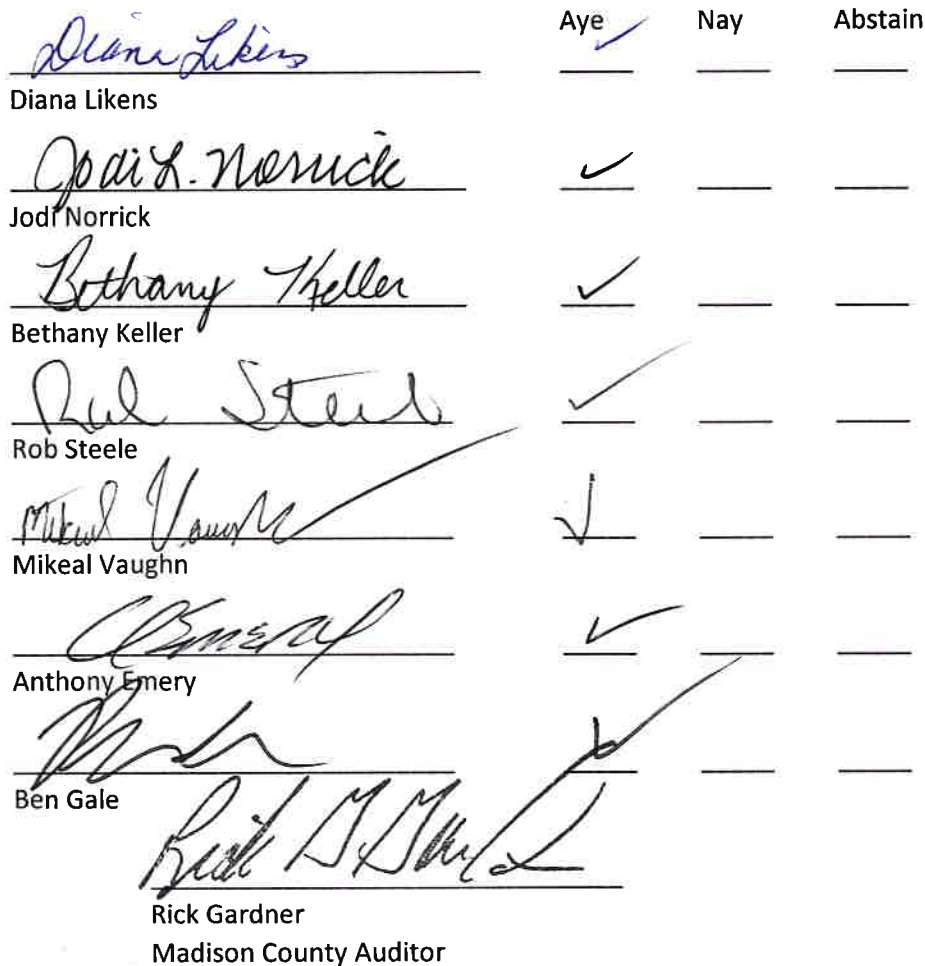 Aye Nay Abstain
Diana Likens
Diana Likens
Jodi L. Norrick
Jodi Norrick
Bethany Keller
Bethany Keller
Rob Steele
Rob Steele
Mikeal Vaughn
Mikeal Vaughn
AEmery
Anthony Emery
Ben Gale
Rick Gardner
Madison County Auditor